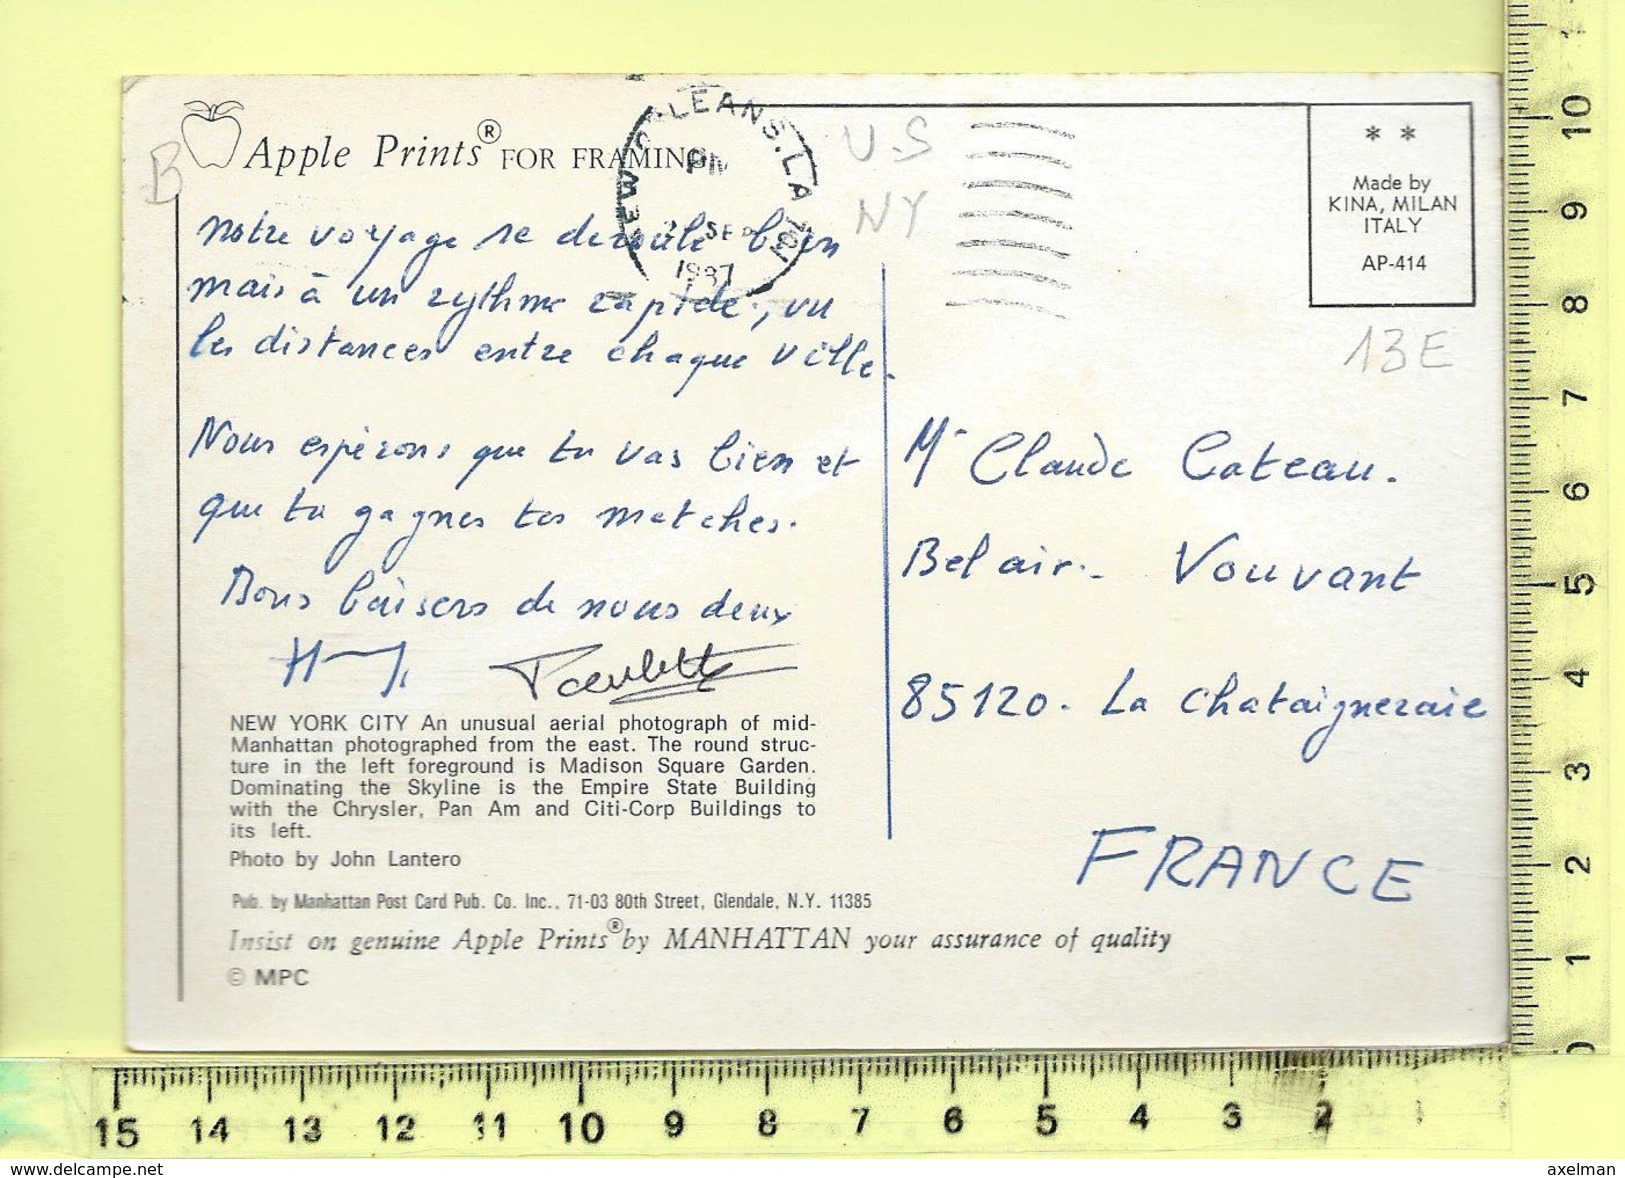 Apple Prints® FOR FRAMING
B
NEW ORLEANS, LA 701
PM
SEP
1987
U.S
NY
* *
Made by
KINA, MILAN
ITALY
AP-414
13E
Notre voyage se deroule bien
mais à un rythme rapide, vu
les distances entre chaque ville.
Nous espérons que tu vas bien et
que tu gagnes tes matches.
Bons baisers de nous deux
Paulette
Mr Claude Cateau.
Bel air. Vouvant
85120. La chataigneraie
FRANCE
NEW YORK CITY An unusual aerial photograph of mid-
Manhattan photographed from the east. The round struc-
ture in the left foreground is Madison Square Garden.
Dominating the Skyline is the Empire State Building
with the Chrysler, Pan Am and Citi-Corp Buildings to
its left.
Photo by John Lantero
Pub. by Manhattan Post Card Pub. Co. Inc., 71-03 80th Street, Glendale, N.Y. 11385
Insist on genuine Apple Prints® by MANHATTAN your assurance of quality
© MPC
10
9
8
7
6
5
4
3
2
1
0
15 14 13 12 11 10 9 8 7 6 5 4 3 2 1
www.delcampe.net
axelman